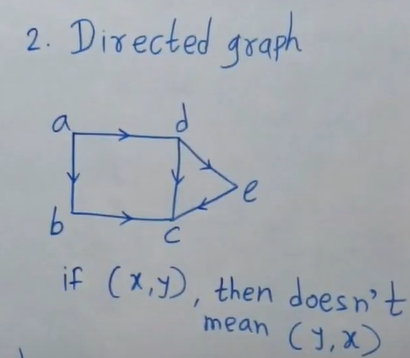 2. Directed graph
a
d
e
b
c
if (x,y), then doesn't
mean (y,x)